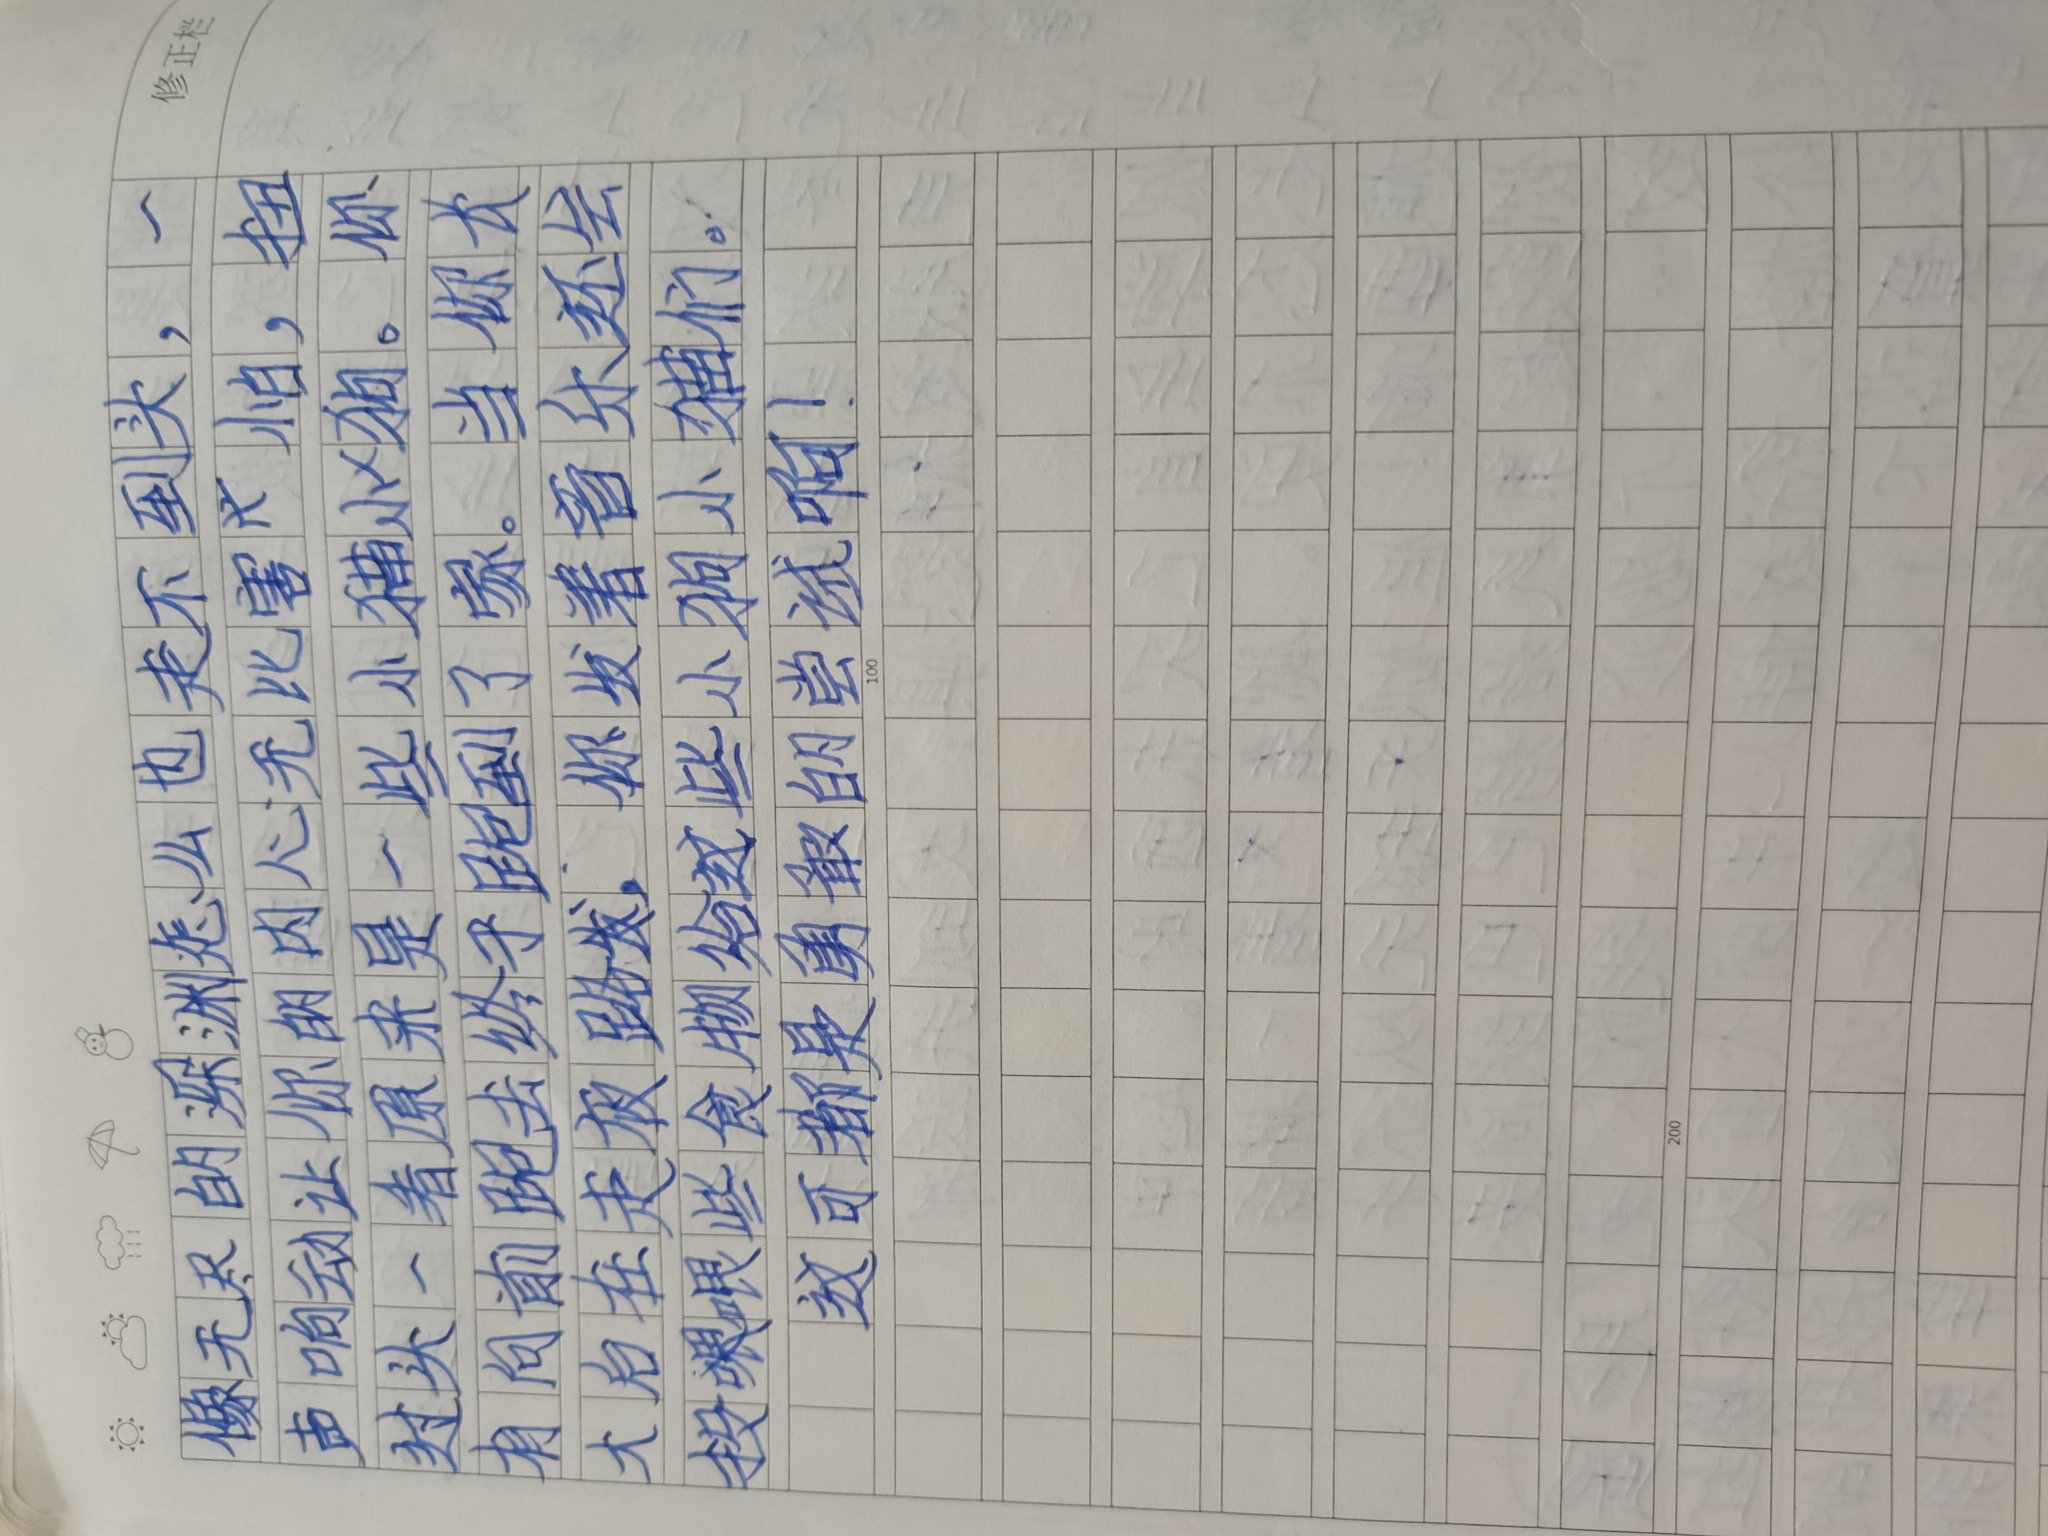 修正栏
像无尽的深渊怎么也走不到头，一
声响动让你的内心无比害怕，扭
过头一看原来是一些小猫小狗。你
有向前跑去终于跑到了家。当你长
大后在走夜路，你发着音乐还会
投喂些食物给这些小狗小猫们。
这可都是勇敢的尝试啊！
100
200